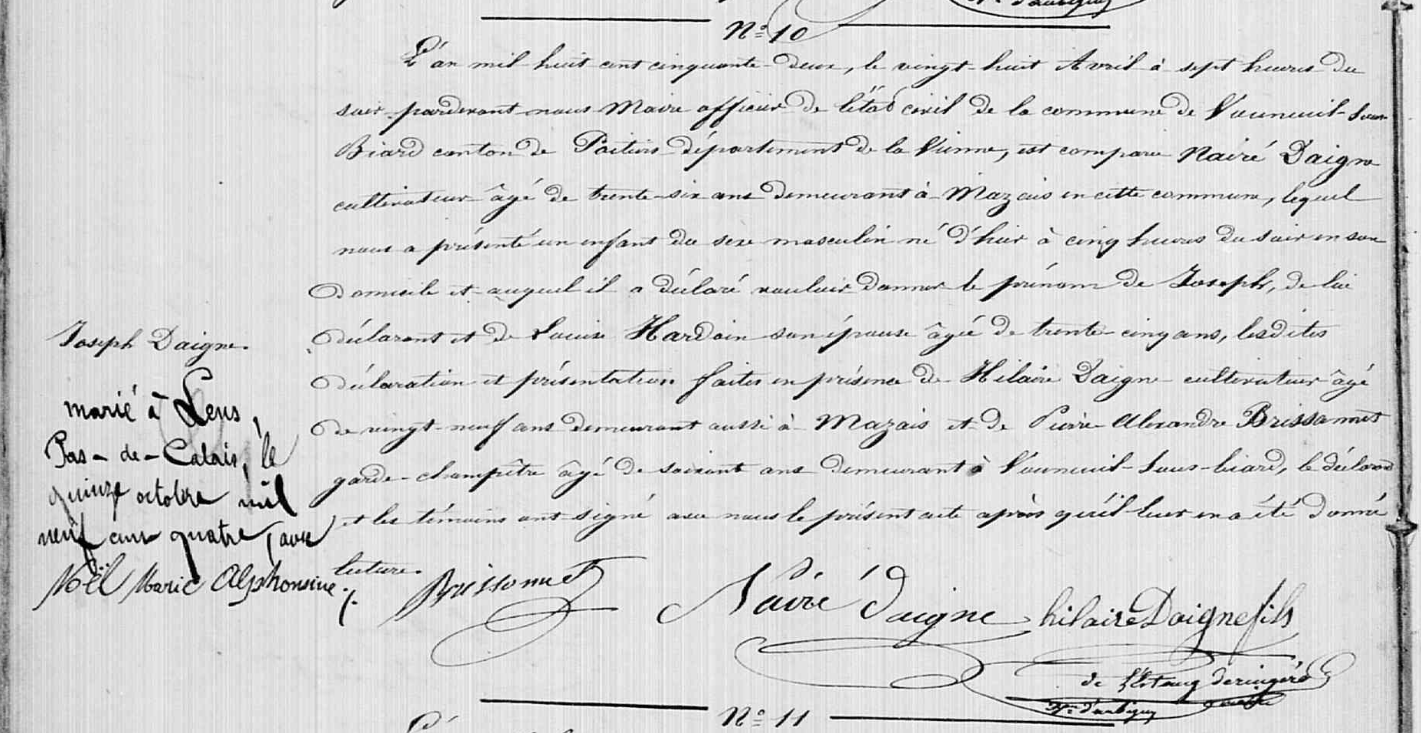 N° 10
L'an mil huit cent cinquante-deux, le vingt-huit Avril à sept heures du
soir pardevant nous Maire officier de l'état civil de la commune de Vouneuil-sous
Biard canton de Poitiers département de la Vienne, est comparu Nairé Daigne
cultivateur âgé de trente-six ans demeurant à Mazais en cette commune, lequel
nous a présenté un enfant du sexe masculin né d'hier à cinq heures du soir en son
domicile et auquel il a déclaré vouloir donner le prénom de Joseph, de lui
déclarant et de Louise Hardoin son épouse âgée de trente-cinq ans, lesdites
déclaration et présentation faites en présence de Hilaire Daigne cultivateur âgé
de vingt-neuf ans demeurant aussi à Mazais et de Pierre Alexandre Brissonnet
garde-champêtre âgé de soixante ans demeurant à Vouneuil-sous-biard, le déclarant
et les témoins ont signé avec nous le présent acte après qu'il leur en a été donné
lecture.
Joseph Daigne.
marié à Lens,
Pas-de-Calais, le
quinze octobre mil
neuf cent quatre, avec
Noël Marie Alphonsine.
Brissonnet
Nairé daigne
hilaire Daigne fils
N° 11